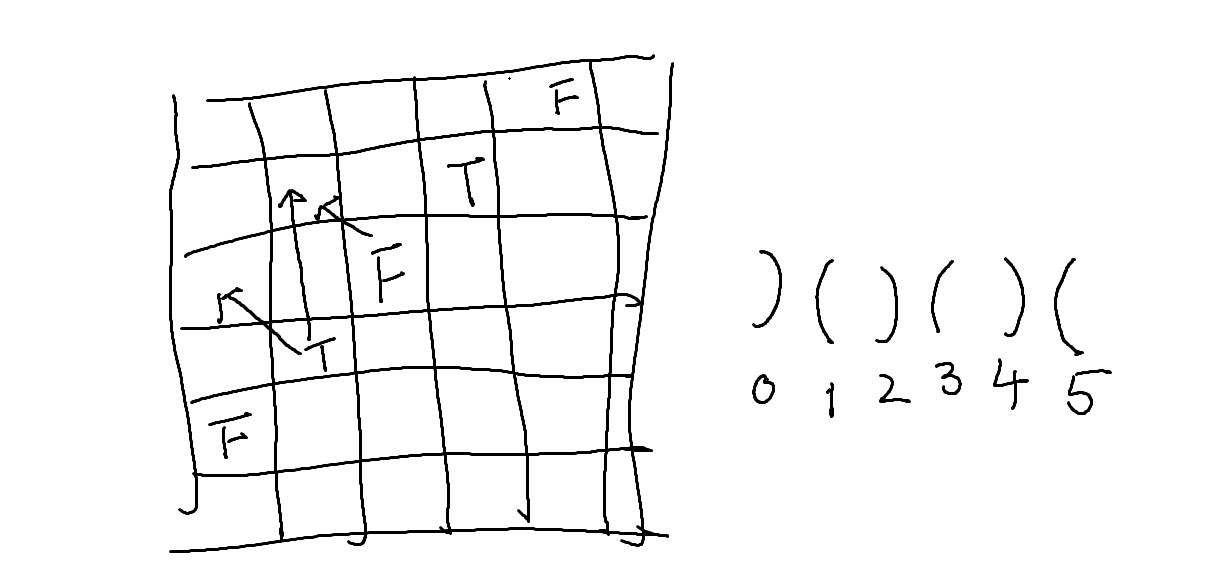 F
T
F
T
F
) ( ) ( ) (
0 1 2 3 4 5